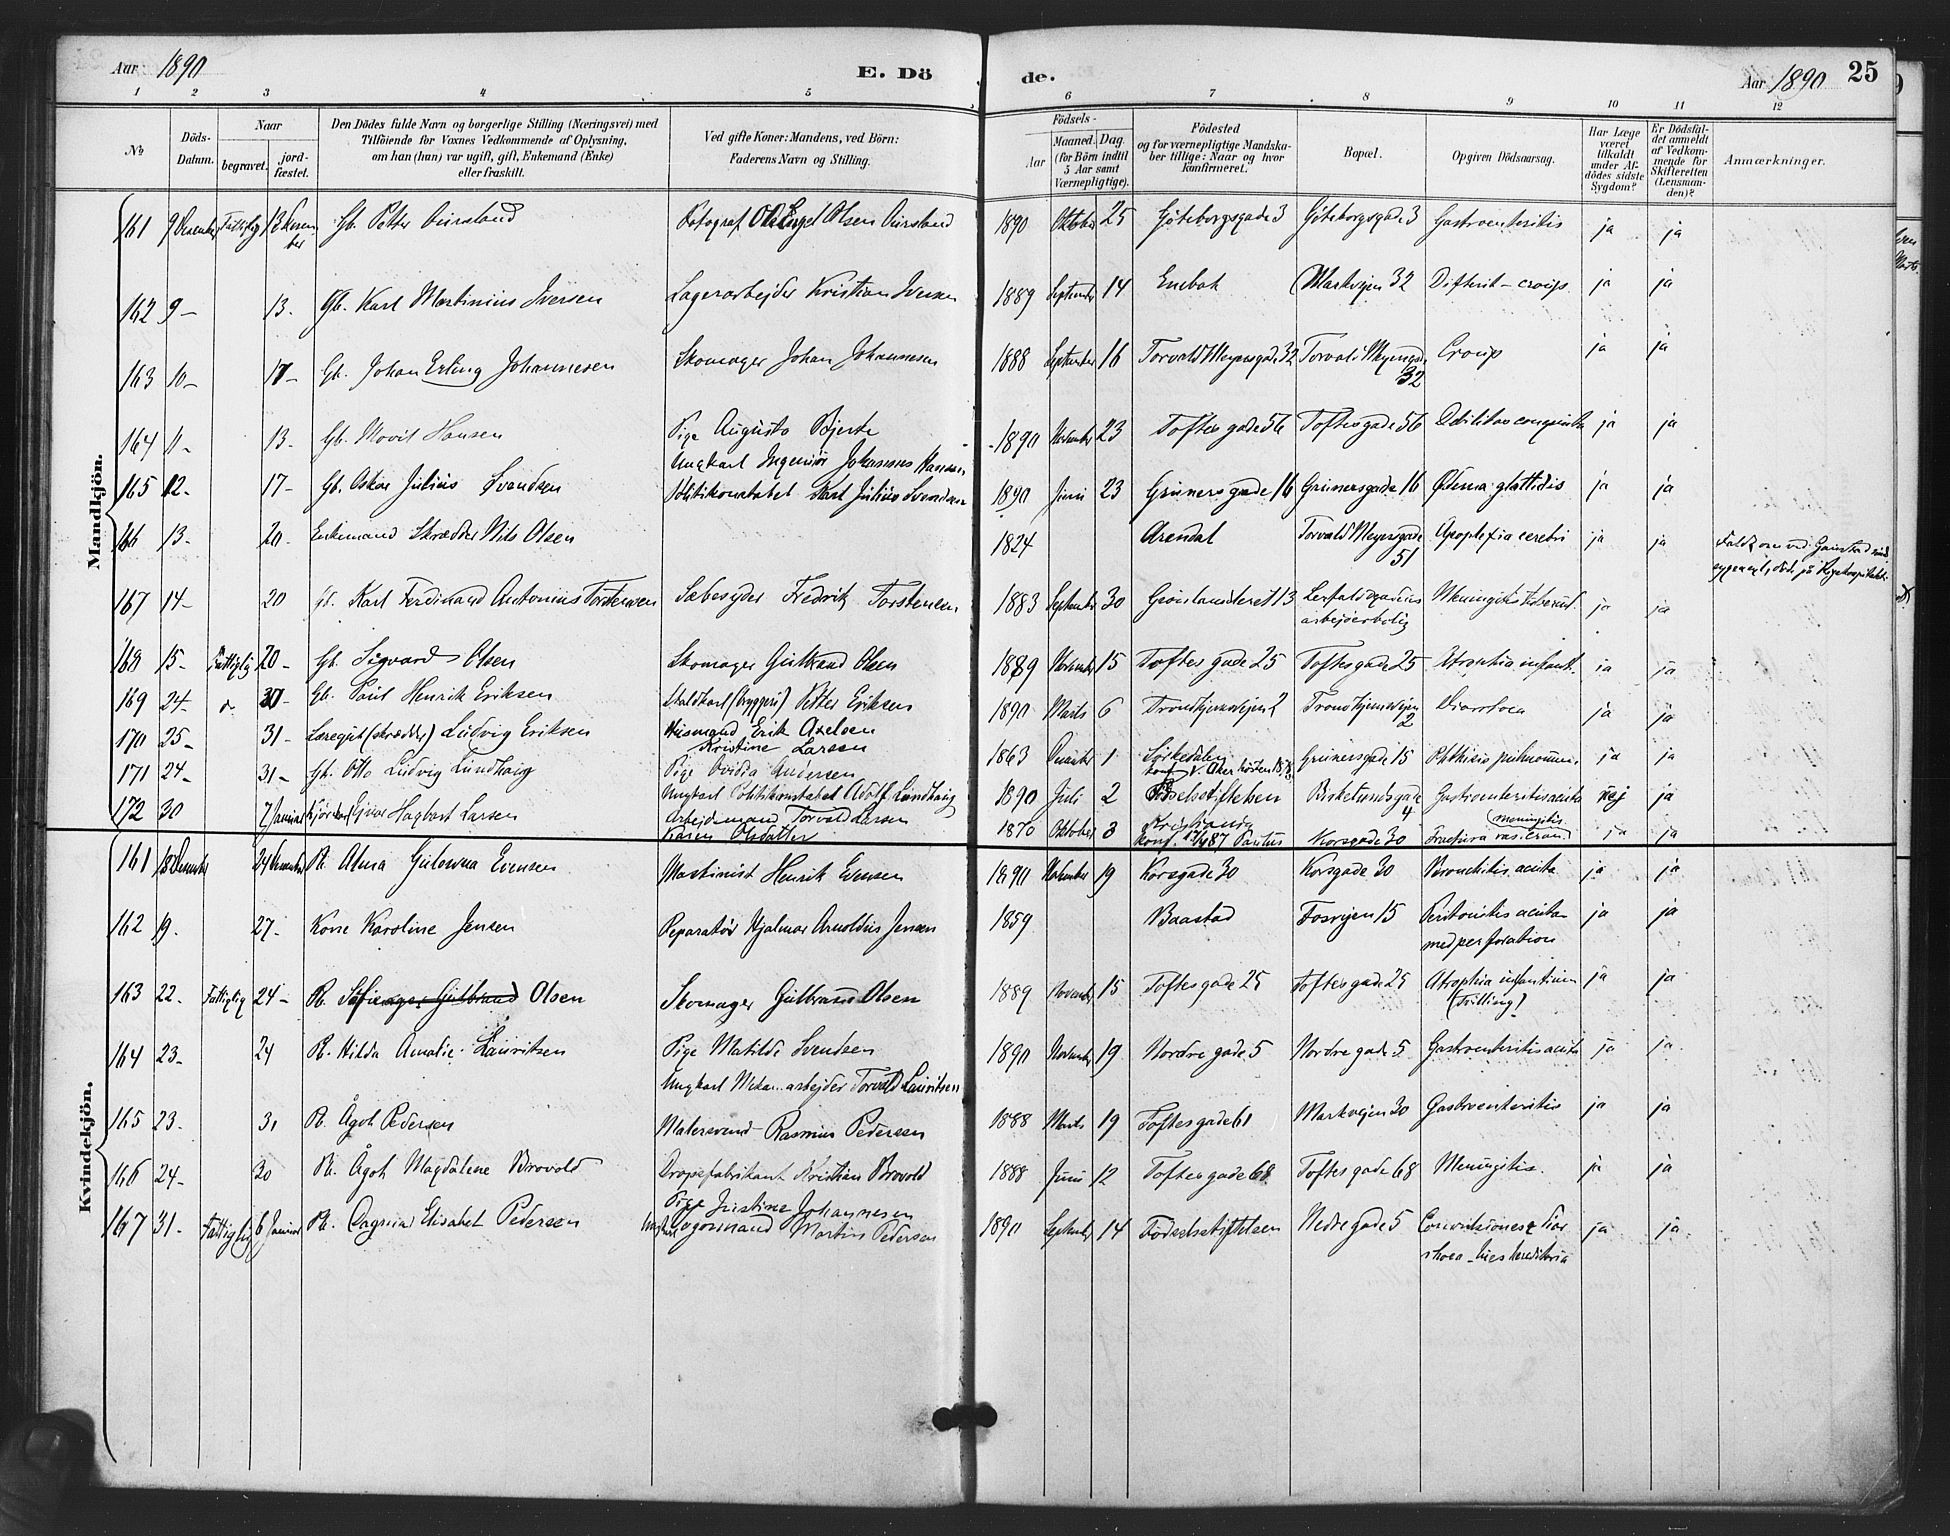 Aar 1890
E. Dö
de.
Aar 1890
25
1 2 3 4 5 6 7 8 9 10 11 12
No
Döds-Datum.
Naar
begravet.
jord-fæstet.
Den Dödes fulde Navn og borgerlige Stilling (Næringsvei) med
Tilföiende for Voxnes Vedkommende af Oplysning,
om han (hun) var ugift, gift, Enkemand (Enke)
eller fraskilt.
Ved gifte Koner: Mandens, ved Börn:
Faderens Navn og Stilling.
Födsels-
Aar
Maaned. Dag.
(for Börn indtil
5 Aar samt
Værnepligtige).
Födested
og for værnepligtige Mandska-
ber tillige: Naar og hvor
konfirmeret.
Bopæl.
Opgiven Dödsaarsag.
Har Læge
været
tilkaldt
under Af-
dödes sidste
Sygdom?
Er Dödsfal-
det anmeldt
af Vedkom-
mende for
Skifteretten
(Lensman-
den)?
Anmærkninger.
Mandkjön.
161 9 Desember Fattiglig 13 Desember Gb. Petter Aursland Fotograf Ole Engel Olsen Aursland 1890 Oktober 25 Göteborgsgade 3 Göteborgsgade 3 Gastroenteritis ja ja
162 9 – 13. Gb. Karl Martinius Iversen Lagerarbejder Kristian Iversen 1889 September 14 Enebak Markvejen 32 Difterit – croup ja ja
163 10 – 17 – Gb. Johan Erling Johannesen Skomager Johan Johannesen 1888 September 16 Torvald Meyersgade 32 Torvald Meyersgade 32 Croup ja ja
164 11 – 13 – Gb. Hansen Pige Augusta Bjerke
Ungkarl Ingeniör Johannes Hansen 1890 November 23 Toftesgade 56 Toftesgade 56 Debilitas congenita ja ja
165 12. 17 – Gb. Oskar Julius Svendsen Politikonstabel Karl Julius Svendsen 1890 Juni 23 Grünersgade 16 Grünersgade 16 Ødema glottidis ja ja
166 13 – 20 – Enkemand Skrædder Nils Olsen 1824 Arendal Torvald Meyersgade 51 Apoplexia cerebri ja ja
167 14 – 20 Gb. Karl Ferdinand Antonius Torstensen Sæbesyder Fredrik Torstensen 1883 September 30 Grønlandsleret 13 arbejderbolig Meningitis tubercul. ja ja
168 15 – Fattiglig 20 – Gb. Sigvard Olsen Skomager Gulbrand Olsen 1889 November 15 Toftesgade 25 Toftesgade 25 Atrophia infant. ja ja
169 24 – 30 – Gb. Paul Henrik Eriksen Staldkarl (bryggeri) Petter Eriksen 1890 Marts 6 Trondhjemsvejen 2 Trondhjemsvejen 2 Diarrhoea ja ja
170 25 – 31 – Læregut (skrædder) Ludvig Eriksen Husmand Erik Axelsen
Kristine Larsen 1863 1 Sørkedalen Grünersgade 15 Phthisis pulmonum. ja ja
171 24 – 31 – Gb. Otto Ludvig Lundhaig Pige Ovidia Andersen
Ungkarl Politikonstabel Adolf Lundhaig 1890 Juli 2 Fødselsstiftelsen Birkelundsgade 4 Gastroenteritis acuta nej ja
172 30 7 Januar Hagbart Larsen Arbejdsmand Torvald Larsen
Karen Olsdatter 1870 Oktober 3 Kristiania
konf. 87 Paulus Korsgade 30 Fractura bas. cranii (meningitis) ja ja
Kvindekjön.
161 18 Desember 24 Desember P. Alma Evensen Maskinist Henrik Evensen 1890 November 19 Korsgade 30 Korsgade 30 Bronchitis acuta ja ja
162 19. 27 – Kone Karoline Jensen Reparatør Hjalmar Arnoldus Jensen 1859 Baastad Fosvejen 15 Peritonitis acuta
med perforation ja ja
163 22 – Fattiglig 24 – P. Olsen Skomager Gulbrand Olsen 1889 November 15 Toftesgade 25 Toftesgade 25 Atrophia infantium
(Tvilling) ja ja
164 23 – 24 P. Hilda Amalie Lauritsen Pige Matilde Svendsen
Ungkarl Mekan. arbejder Torvald Lauritsen 1890 November 19 Nordregade 5 Nordregade 5 Gastroenteritis acuta ja ja
165 23 – 31 P. Ågot Pedersen Malersvend Rasmus Pedersen 1888 Marts 19 Toftesgade 61 Markvejen 30 Gastroenteritis ja ja
166 24 – 30 P. Ågot Magdalene Brovold Dropsfabrikant Kristian Brovold 1888 Juni 12 Toftesgade 68 Toftesgade 68 Meningitis. ja ja
167 31 – Fattiglig 6 Januar P. Dagmar Elisabet Pedersen Pige Justine Johannesen
Ungkarl Martin Pedersen 1890 September 14 Fødselsstiftelsen Nedregade 5 Convulsiones & diar
rhoea – lues hereditaria ja ja